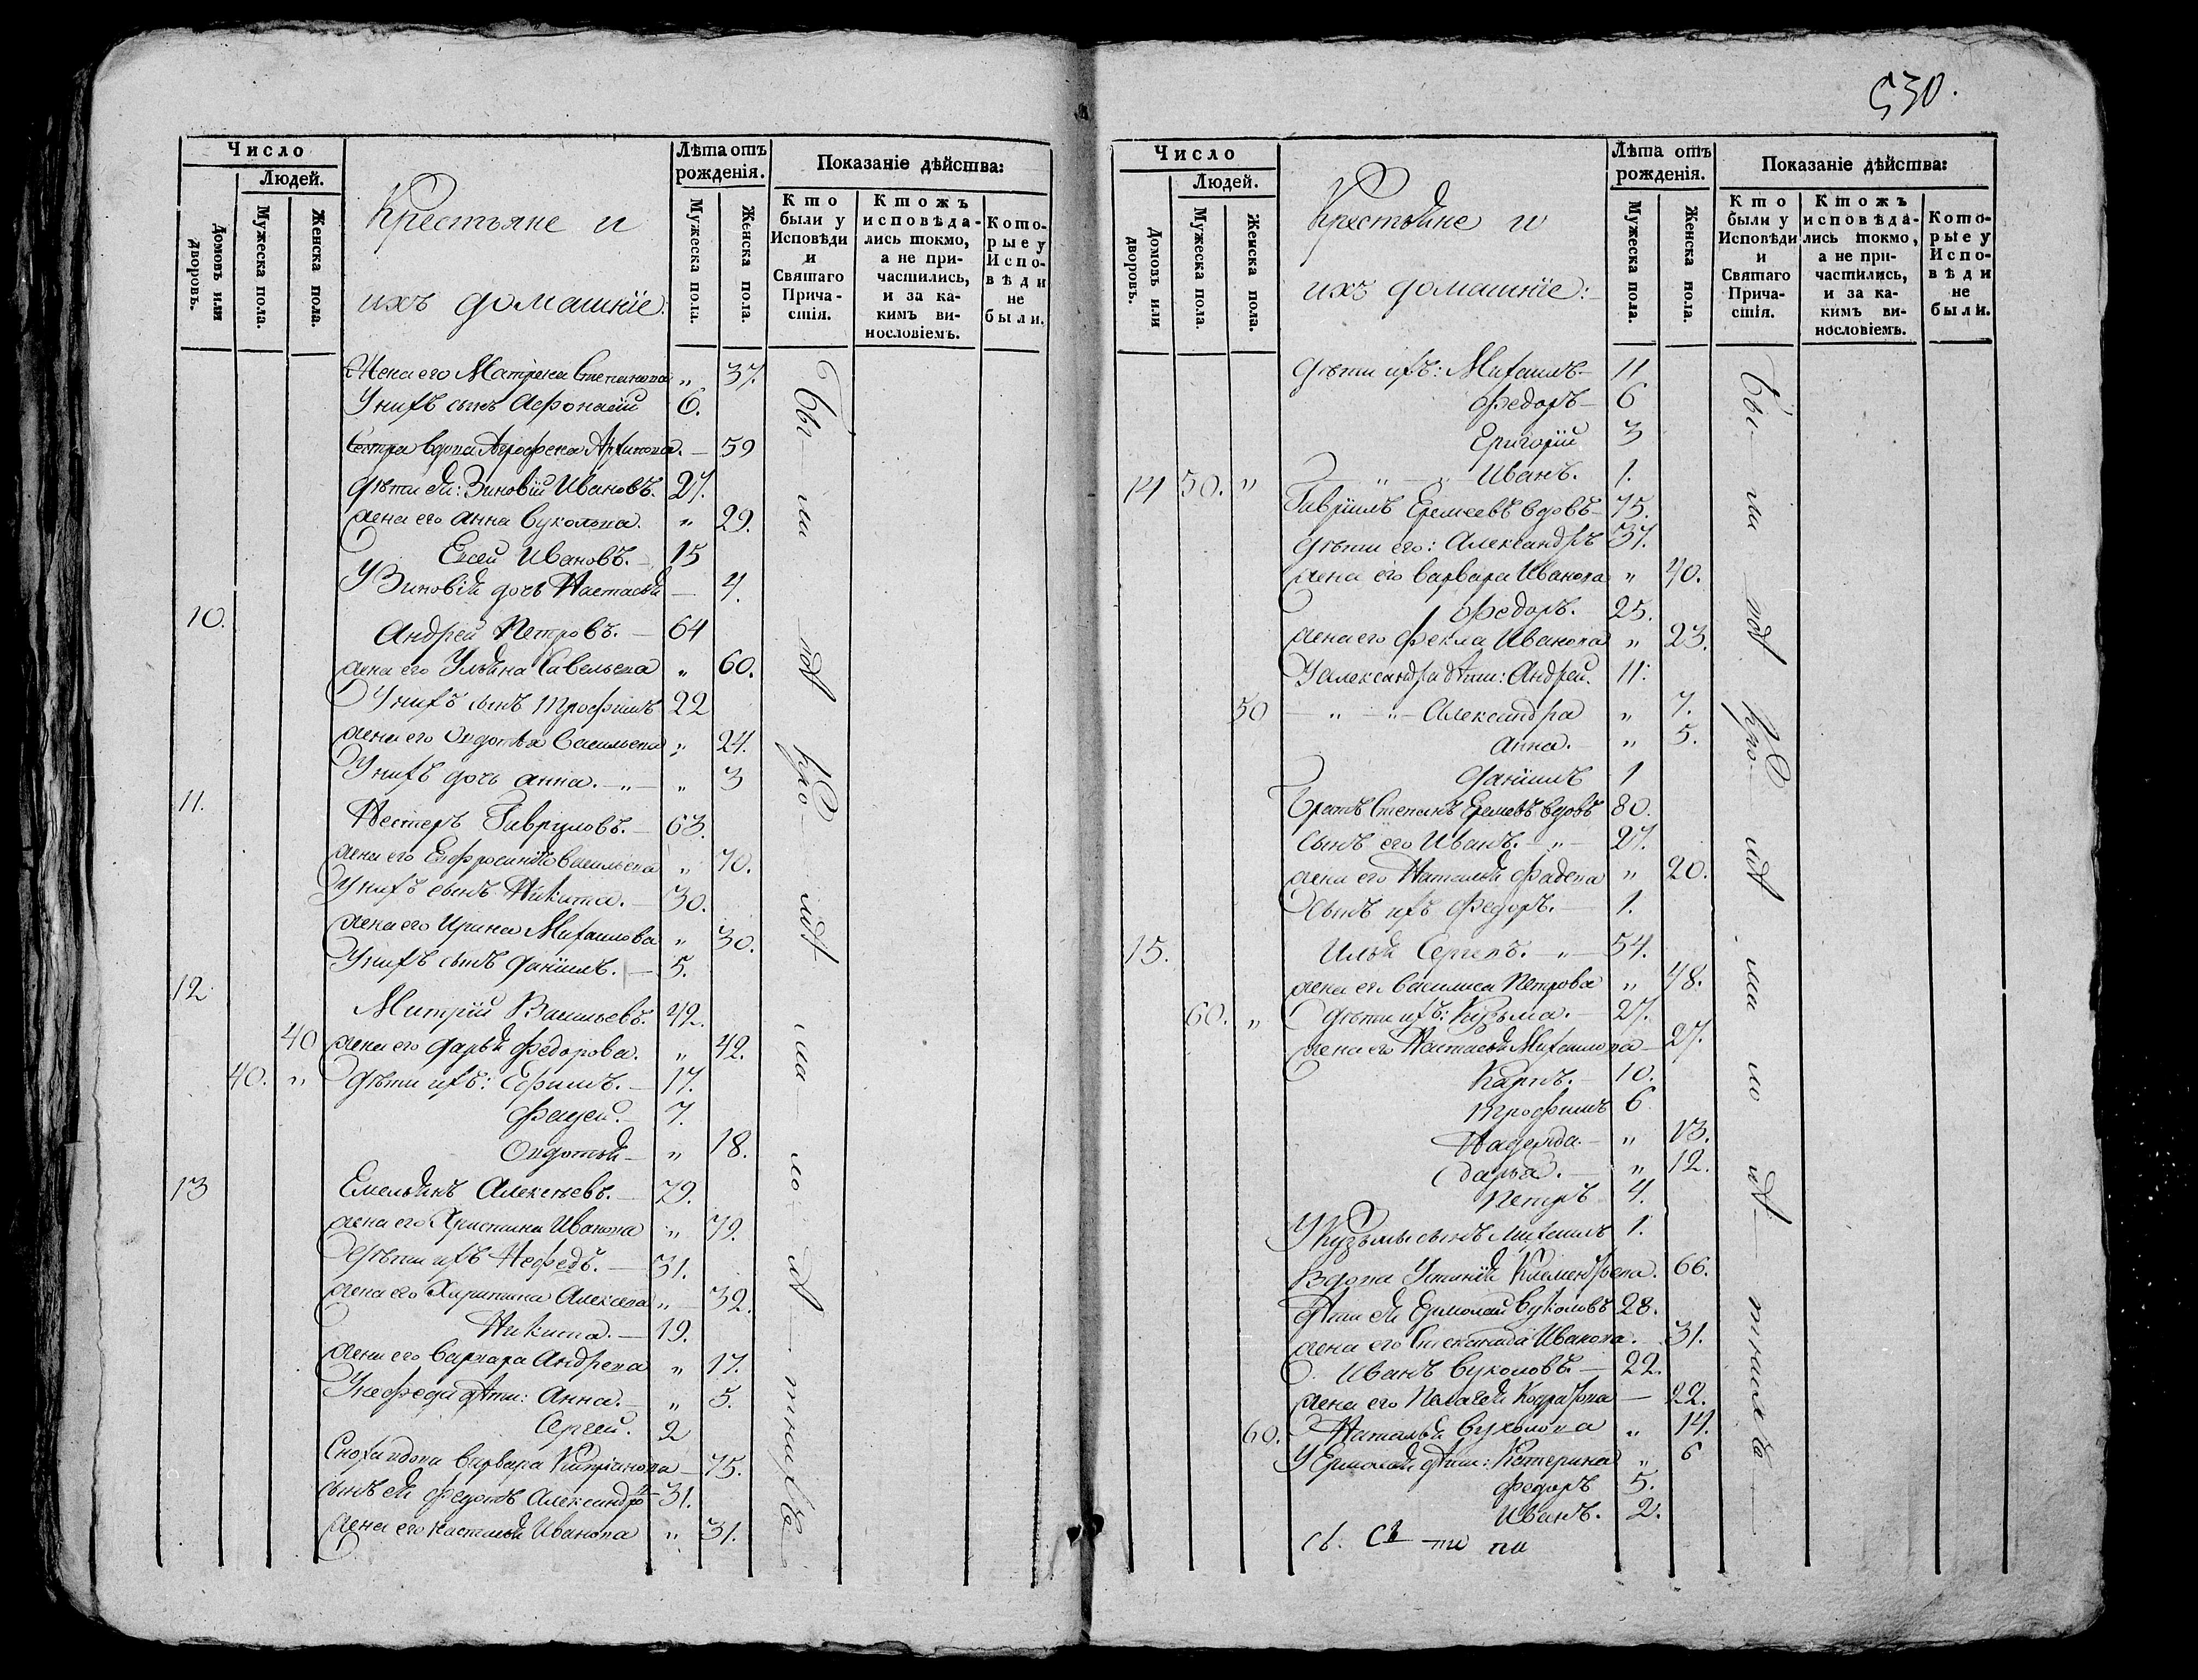 530.
Число
Людей.
Домовъ или дворовъ.
Мужеска пола.
Женска пола.
Крестьяне и
ихъ домашніе:
Лѣта отъ рожденія.
Мужеска пола.
Женска пола.
Показаніе дѣйства:
Кто были у Исповѣди и Святаго Причастія.
Ктожъ исповѣдались токмо, а не причастились, и за какимъ винословіемъ.
Которые у Исповѣди не были.
Жена его Матрена Степанова " 37.
У нихъ сынъ Афонасій 6.
вдова Агрофена Архипова. — 59
Дѣти ея: Зиновій Ивановъ. 27.
жена его Анна Вуколова. " 29.
Евсей Ивановъ. 15
У Зиновія дочь Настасья — 4.
10. Андрей Петровъ. — 64
жена его Ульяна Савельева " 60.
У нихъ сынъ Трофимъ 22
жена его Овдотья Васильева " 24.
У нихъ дочь Анна. — " — " 3
11. Нестеръ Гавриловъ. — 63.
жена его Евфросинія Васильева " 70.
У нихъ сынъ Никита. — 30.
жена его Ирина Михаилова " 30.
У нихъ сынъ Даніилъ. — 5.
12. Митрій Васильевъ. 42.
40 жена его Дарья Федорова. " 42.
40. " Дѣти ихъ: Ефимъ. — 17.
Фадей. — 7.
Овдотья — " 18.
13 Емельянъ Алексѣевъ. 79.
жена его Христина Иванова " 79.
Дѣти ихъ Нефедъ. — 31.
жена его Харитина Алексева " — 32.
Никита. — 19.
жена его Варвара Андрева " 17.
У Нефеда дѣти: Анна. — " 5.
Сергей. 2
Сноха вдова Варвара Киприанова — 75.
сынъ ея Федотъ Александровъ 31.
жена его Настасья Иванова " 31.
Бы — ли
у
Число
Людей.
Домовъ или дворовъ.
Мужеска пола.
Женска пола.
Крестьяне и
ихъ домашніе:
Лѣта отъ рожденія.
Мужеска пола.
Женска пола.
Показаніе дѣйства:
Кто были у Исповѣди и Святаго Причастія.
Ктожъ исповѣдались токмо, а не причастились, и за какимъ винословіемъ.
Которые у Исповѣди не были.
Дѣти ихъ: Михаилъ — 11
Федоръ — 6
Григорій 3
" — " Иванъ. 1.
14 50. " Гавріилъ Еремеевъ вдовъ — 75.
Дѣти его: Александръ 37.
жена его Варвара Иванова " 40.
Федоръ. 25.
жена его Фекла Иванова " 23.
У Александра дѣти: Андрей. 11.
50 — " — " — Александра " 7.
Анна. — " 5.
Даніилъ 1
Братъ Степанъ Еремевъ вдовъ 80.
Сынъ его Иванъ. — " — 27.
жена его Наталья Фадева " 20.
Сынъ ихъ Федоръ. — 1.
15. Илья Сергевъ. — " — 54.
жена его Василиса Петрова " 48.
60. " Дѣти ихъ: Кузьма. — 27.
жена его Настасья Михаилова — 27.
Карпъ. — 10.
Трофимъ 6
Надежда. — " 13.
Дарья. — " 12.
Петръ 4.
У Кузьмы сынъ Михаилъ 1.
Вдова Устинья Климентьева. 66.
Дѣти ея Ермолай Вуколовъ 28.
жена его Иванова. — 31.
Иванъ Вуколовъ. — 22.
жена его Пелагея Кондратова — 22.
60. Наталья Вуколова " 14.
У Ермолая дѣти: Катерина " 6
Федоръ 5.
Иванъ. 2.
Бы — ли